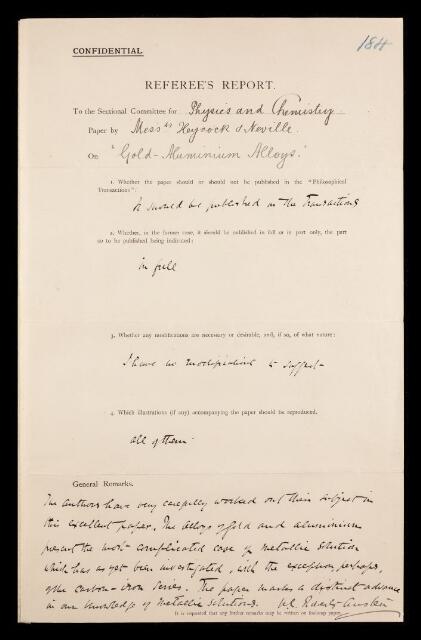 CONFIDENTIAL
184
REFEREE'S REPORT.
To the Sectional Committee for Physics and Chemistry
Paper by Messrs Heycock & Neville
On "Gold-Aluminium Alloys."
1. Whether the paper should or should not be published in the "Philosophical
Transactions":
It should be published in the Transactions
2. Whether, in the former case, it should be published in full or in part only, the part
so to be published being indicated:
in full
3. Whether any modifications are necessary or desirable, and, if so, of what nature:
I have no modifications to suggest
4. Which illustrations (if any) accompanying the paper should be reproduced.
all of them
General Remarks.
The authors have very carefully worked out their subject in
this excellent paper. The alloys of gold and aluminium
present the most complicated case of metallic solution
which has as yet been investigated, with the exception, perhaps,
of the carbon-iron series. The paper marks a distinct advance
in our knowledge of metallic solutions. W.C. Roberts-Austen
It is requested that any further remarks may be written on foolscap paper.